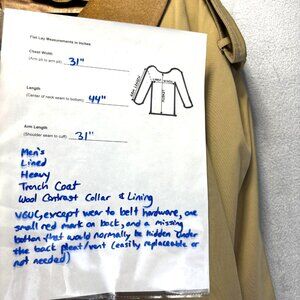 Flat Lay Measurements in Inches
Chest Width
(Arm pit to arm pit) 31"
Length
(Center of neck seam to bottom) 44"
Arm Length
(Shoulder seam to cuff) 31"
Men's
Lined
Heavy
Trench Coat
Wool Contrast Collar & Lining
VGUC, except wear to belt hardware, one
small red mark on back, and a missing
button that would normally be hidden under
the back pleat/vent (easily replaceable or
not needed)